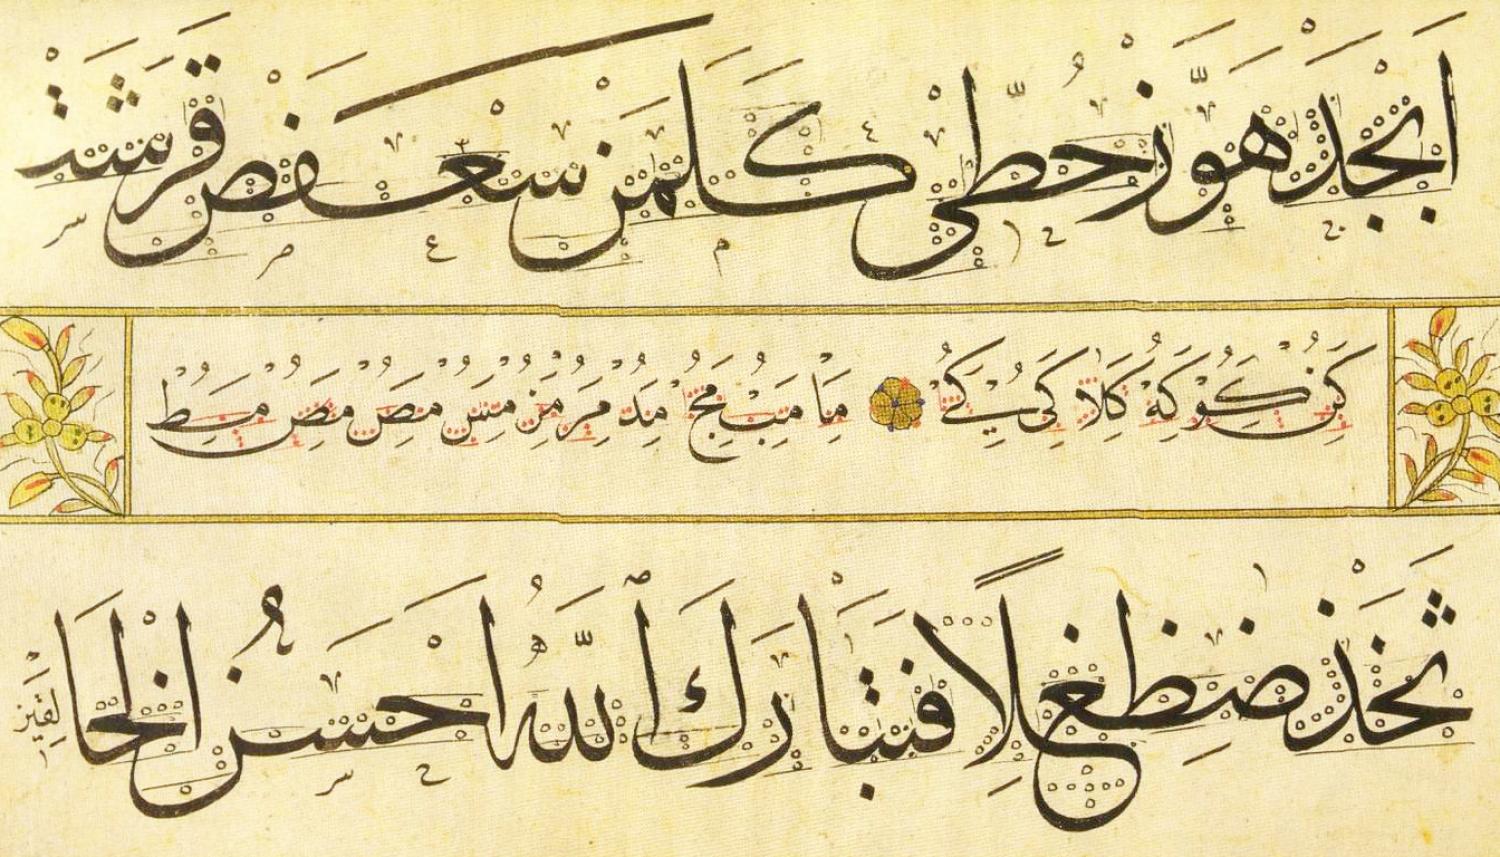 ابجد هوز حطي كلمن سعفص قرشت
كن كو كه كلا كى كے ما مب مج مد مر مز مس مص مض مط
ثخذ ضظغلا فتبارك الله احسن الخالقين